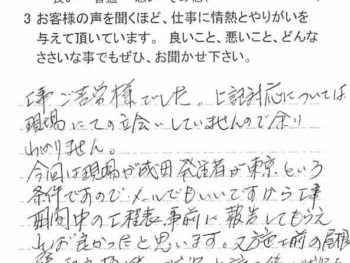 3 お客様の声を聞くほど、仕事に情熱とやりがいを
与えて頂いています。 良いこと、悪いこと、どんな
ささいな事でもぜひ、お聞かせ下さい。
工事ご苦労様でした。上記対応については
現場にての立会いしていませんので余り
わかりません。
今回は現場が成田発注者が東京という
条件ですので、メールでもいいですから工事
期間中の工程表事前に報告してもらえ
ればよかったと思います。又施工前の屋根